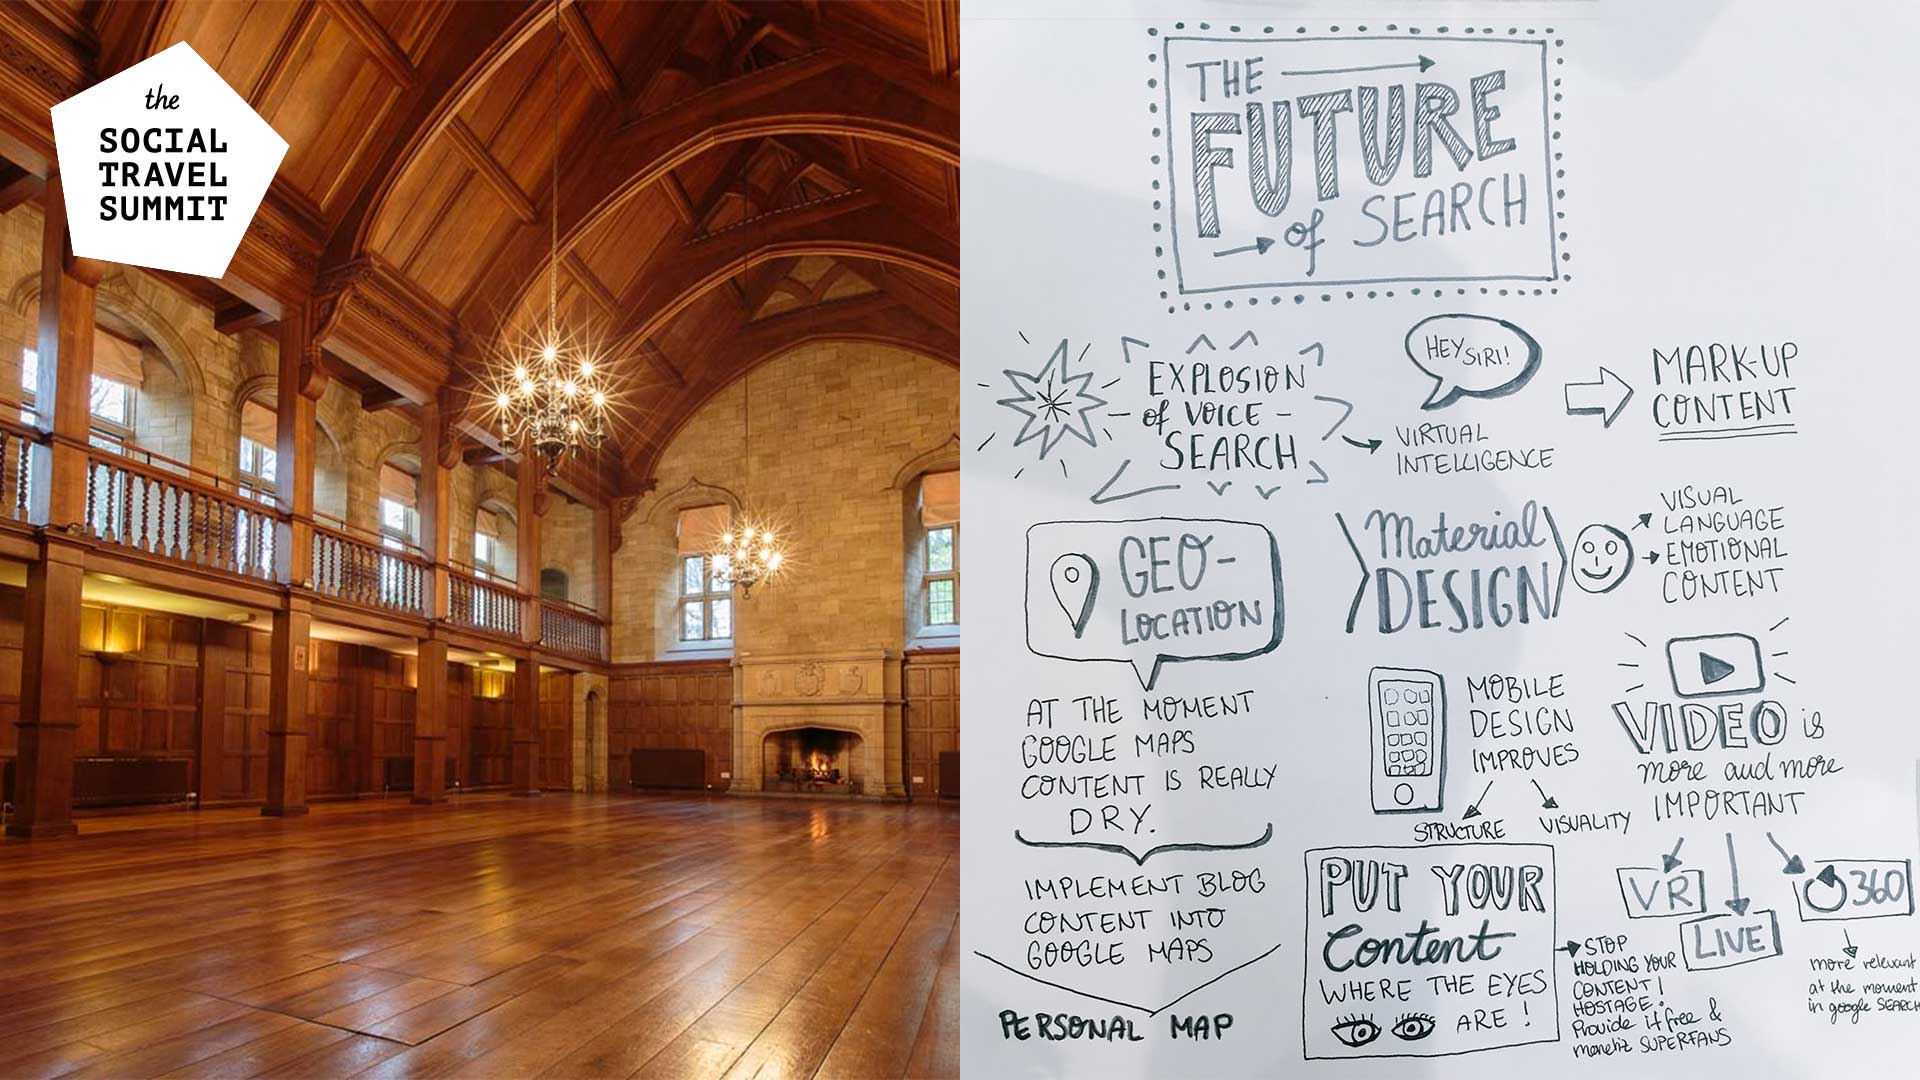 the
SOCIAL
TRAVEL
SUMMIT
THE
FUTURE
of SEARCH
EXPLOSION
of VOICE -
SEARCH
HEY SIRI!
VIRTUAL
INTELLIGENCE
MARK-UP
CONTENT
GEO-
LOCATION
AT THE MOMENT
GOOGLE MAPS
CONTENT IS REALLY
DRY.
IMPLEMENT BLOG
CONTENT INTO
GOOGLE MAPS
PERSONAL MAP
Material
DESIGN
VISUAL
LANGUAGE
EMOTIONAL
CONTENT
MOBILE
DESIGN
IMPROVES
STRUCTURE
VISUALITY
VIDEO is
more and more
IMPORTANT
VR
LIVE
360
more relevant
at the moment
in google SEARCH
PUT YOUR
Content
WHERE THE EYES
ARE!
STOP
HOLDING YOUR
CONTENT
HOSTAGE!
Provide it free &
monetiz SUPERFANS